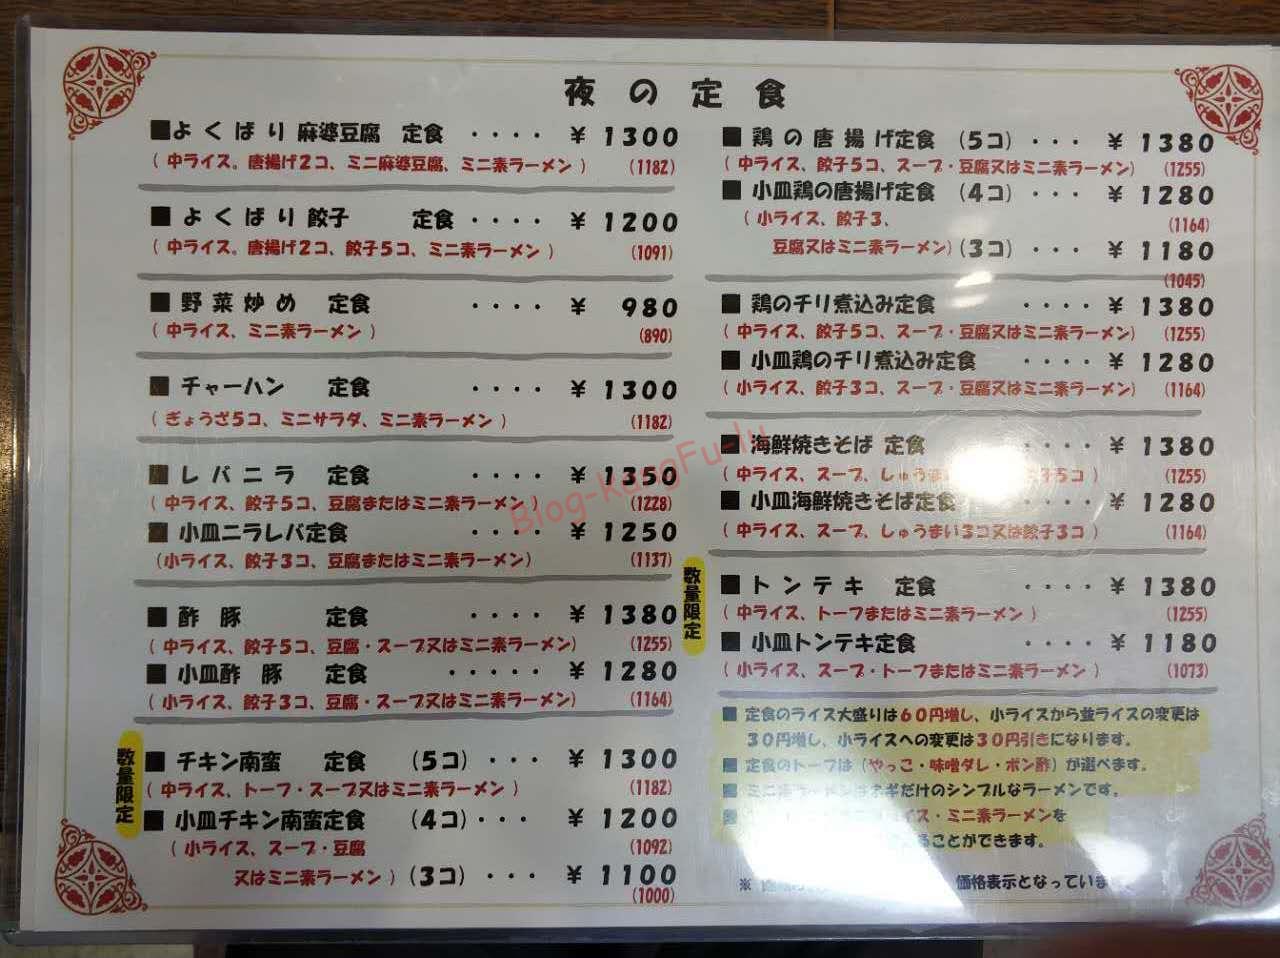 夜の定食
■よくばり麻婆豆腐 定食 ・・・・ ¥ 1300
(中ライス。唐揚げ2コ、ミニ麻婆豆腐、ミニ素ラーメン) (1182)
■よくばり餃子 定食 ・・・・ ¥ 1200
(中ライス。唐揚げ2コ、餃子5コ、ミニ素ラーメン) (1091)
■野菜炒め 定食 ・・・・ ¥ 980
(中ライス、ミニ素ラーメン) (890)
■チャーハン 定食 ・・・・ ¥ 1300
(ぎょうざ5コ、ミニサラダ、ミニ素ラーメン) (1182)
■レバニラ 定食 ・・・・ ¥ 1350
(中ライス、餃子5コ、豆腐またはミニ素ラーメン) (1228)
■小皿ニラレバ定食 ・・・・ ¥ 1250
(小ライス、餃子3コ、豆腐またはミニ素ラーメン) (1137)
■酢豚 定食 ・・・・ ¥ 1380
(中ライス、餃子5コ、豆腐・スープ又はミニ素ラーメン) (1255)
■小皿酢豚 定食 ・・・・・ ¥ 1280
(小ライス、餃子3コ、豆腐・スープ又はミニ素ラーメン) (1164)
数量限定
■チキン南蛮 定食 (5コ)・・・ ¥ 1300
(中ライス、トーフ・スープ又はミニ素ラーメン) (1182)
■小皿チキン南蛮定食 (4コ)・・・ ¥ 1200
(小ライス、スープ・豆腐 (1092)
又はミニ素ラーメン) (3コ)・・・ ¥ 1100
(1000)
■鶏の唐揚げ定食 (5コ)・・・ ¥ 1380
(中ライス、餃子5コ、スープ・豆腐又はミニ素ラーメン) (1255)
■小皿鶏の唐揚げ定食 (4コ)・・・ ¥ 1280
(小ライス、餃子3、 (1164)
豆腐又はミニ素ラーメン) (3コ)・・・ ¥ 1180
(1045)
■鶏のチリ煮込み定食 ・・・・ ¥ 1380
(中ライス、餃子5コ、スープ・豆腐又はミニ素ラーメン) (1255)
■小皿鶏のチリ煮込み定食 ・・・・ ¥ 1280
(小ライス、餃子3コ、スープ・豆腐又はミニ素ラーメン) (1164)
■海鮮焼きそば 定食 ・・・・ ¥ 1380
(中ライス、スープ、しゅうま 子5コ) (1255)
■小皿海鮮焼きそば定食 ・・・・ ¥ 1280
(中ライス、スープ、しゅうまい3コ又は餃子3コ) (1164)
数量限定
■トンテキ 定食 ・・・・ ¥ 1380
(中ライス、トーフまたはミニ素ラーメン) (1255)
■小皿トンテキ定食 ・・・・ ¥ 1180
(小ライス、スープ・トーフまたはミニ素ラーメン) (1073)
■定食のライス大盛りは60円増し、小ライスから並ライスの変更は
30円増し、小ライスへの変更は30円引きになります。
■定食のトーフは(やっこ・味噌ダレ・ポン酢)が選べます。
■ミニ素ラーメンはネギだけのシンプルなラーメンです。
■ イス・ミニ素ラーメンを
ことができます。
※ 価格表示となっていま
Blog-KungFu-lu